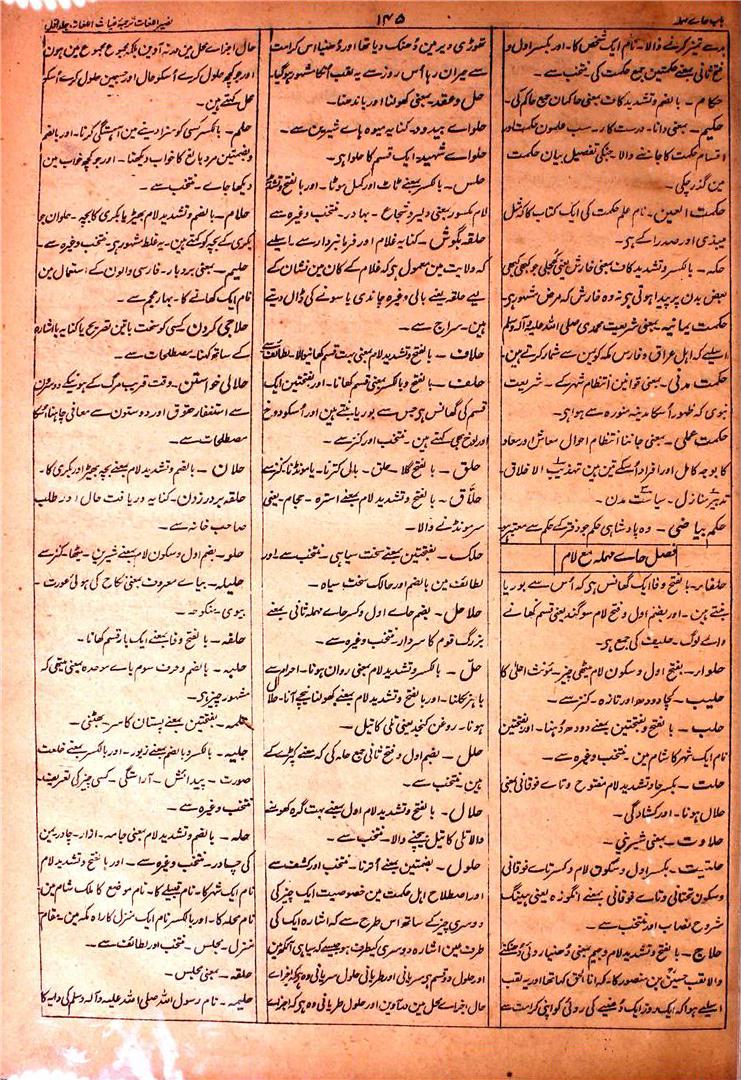 باب حاے مہملہ
۱۴۵
نصیر اللغات ترجمۂ غیاث اللغات جلد اول
برے تمیز کرنے والا۔ نام ایک شخص کا۔ اور بکسر اول و
فتح ثانی بمعنے حکمتین جمع حکمت کی منتخب سے۔
حکام۔ بالضم و تشدید کاف بمعنی حاکمان جمع حاکم کی۔
حکیم۔ بمعنی دانا۔ درست کار۔ سب علمون حکمت اور
اقسام حکمت کا جاننے والا۔ جنکی تفصیل بیان حکمت
مین گذر چکی۔
حکمت العین۔ نام علم حکمت کی ایک کتاب کا کہ مثل
میبذی اور صدرا کے ہی۔
حکہ۔ بالکسر و تشدید کاف بمعنی خارش یعنی کھجلی جو کبھی کبھی
بعض بدن پر پیدا ہوتی ہی نہ وہ خارش کہ مرض مشہور ہی۔
حکمت یمانیہ۔ بمعنی شریعت محمدی صلی اللہ علیہ و آلہ وسلم
اسلیے کہ اہل عراق و فارس مکہ کو یمن سے شمار کرتے ہین۔
حکمت مدنی۔ بمعنی قوانین انتظام شہر کے۔ شریعت
نبوی کہ ظہور اُسکا مدینہ منورہ سے ہوا ہی۔
حکمت عملی۔ بمعنی جاننا انتظام احوال معاش و معاد
کا بوجہ کامل اور افراد اُسکے تین ہین تہذیب الاخلاق۔
تدبیر منازل۔ سیاست مدن۔
حکم بیاضی۔ وہ پادشاہی حکم جو دفتر کے حکم سے معتبر ہو
فصل حاے مہملہ مع لام
حلفاء۔ بالفتح و فا ایک گھانس ہی کہ اُس سے بوریا
بنتے ہین۔ اور بضم اول و فتح لام سوگند یعنی قسم کھانے
والے لوگ۔ حلیف کی جمع ہی۔
حلوا۔ بفتح اول و سکون لام میٹھی چیز۔ مؤنث احلی کا
حلیب۔ کچا دودھ اور تازہ۔ کنز سے۔
حلب۔ بالفتح و بفتحتین بمعنے دودھ دوہنا۔ اور بفتحتین
نام ایک شہر کا شام مین۔ منتخب وغیرہ سے۔
حلت۔ بکسر حا و تشدید لام مفتوح و تاے فوقانی بمعنی
حلال ہونا۔ اور کشادگی۔
حلاوت۔ بمعنی شیرینی۔
حلتیت۔ بکسر اول و سکون لام و کسر تاے فوقانی
و سکون تحتانی و تاے فوقانی بمعنے انگوزہ یعنی ہینگ
شروح نصاب اور منتخب سے۔
حلاج۔ بالفتح و تشدید لام و جیم بمعنی دھنیا روئی دھنکنے
والا لقب حسین بن منصور کا کہ انا الحق کہا تھا اور یہ لقب
اسلیے ہوا کہ ایک روز ایک دھنیے کی روئی کو اپنی کرامت سے
تھوڑی دیر مین دُھنک دیا تھا اور دھنیا اس کرامت
سے حیران رہا اُس روز سے یہ لقب اُنکا مشہور ہو گیا۔
حل و عقد۔ بمعنی کھولنا اور باندھنا۔
حلواے بیدود۔ کنایہ میوہ ہاے شیرین سے۔
حلواے شہید۔ ایک قسم کا حلوا ہی۔
حلس۔ بالکسر بمعنے ٹاٹ اور کمل موٹا۔ اور بالفتح و تشدید
لام مکسور بمعنی دلیر و شجاع۔ بہادر۔ منتخب وغیرہ سے
حلقہ بگوش۔ کنایہ غلام اور فرمانبردار سے۔ اسلیے
کہ ولایت مین معمول ہی کہ غلام کے کان مین نشان کے
لیے حلقہ یعنے بالی وغیرہ چاندی یا سونے کی ڈال دیتے
ہین۔ سراج سے۔
حلاف۔ بالفتح و تشدید لام بمعنی بہت قسم کھانیوالا۔ لطائف سے
حلف۔ بالفتح و بالکسر بمعنی قسم کھانا۔ اور بفتحتین ایک
قسم کی گھانس ہی جس سے بوریا بنتے ہین اور اُسکو دوخ
اور لوخ بھی کہتے ہین۔ منتخب اور کنز سے۔
حلق۔ بالفتح گلا۔ حلق۔ بال کترنا۔ یا مونڈنا۔ کنز سے
حلّاق۔ بالفتح و تشدید لام بمعنے استرہ۔ حجام۔ یعنی
سر مونڈنے والا۔
حلک۔ بفتحتین بمعنے سخت سیاہی۔ منتخب سے۔ اور
لطائف مین بالضم اور حالک سخت سیاہ۔
حلاحل۔ بضم حاے اول و کسر حاے مہملہ ثانی بمعنے
بزرگ قوم کا سردار۔ منتخب وغیرہ سے۔
حلّ۔ بالکسر و تشدید لام بمعنی روان ہونا۔ احرام سے
باہر نکلنا۔ اور بالفتح و تشدید لام بمعنے کھولنا نیچے آنا۔ حلال
ہونا۔ روغن کنجد یعنی تلی کا تیل۔
حلل۔ بضم اول و فتح ثانی جمع حلہ کی کہ بمعنے کپڑے کے
ہین منتخب سے۔
حلال۔ بالفتح و تشدید لام اول بمعنے بہت گرہ کھولنے
والا تلی کا تیل بیچنے والا۔ منتخب سے۔
حلول۔ بضمتین بمعنے اُترنا۔ منتخب اور کشف سے
اور اصطلاح اہل حکمت مین خصوصیت ایک چیز کی
دوسری چیز کے ساتھ اس طرح سے کہ اشارہ ایک کی
طرف عین اشارہ دوسری کیطرف ہو جیسے کہ سیاہی آنکھ مین
اور حلول دو قسم ہی سریانی اور طریانی حلول سریانی وہ ہی کہ اجزاے
حال اجزاے محل مین در آوین اور حلول طریانی وہ ہی کہ اجزاے
حال اجزاے محل مین در نہ آوین بلکہ مجموع مجموع مین ہون
اور جو کچھ حلول کرے اُسکو حال اور جسمین حلول کرے اُسکو
محل کہتے ہین۔
حلم۔ بالکسر کسی کو سزا دینے مین آہستگی کرنا۔ اور بالضم
و بضمتین مرد بالغ کا خواب دیکھنا۔ اور جو کچھ خواب مین
دیکھا جاے۔ منتخب سے۔
حلام۔ بالضم و تشدید لام بھیڑ یا بکری کا بچہ۔ حلوان جو
بکری کے بچہ کو کہتے ہین۔ یہ غلط مشہور ہی۔ منتخب وغیرہ سے۔
حلیم۔ بمعنی بردبار۔ فارسی والون کے استعمال مین
نام ایک کھانے کا۔ بہار عجم سے۔
حلاجی کردن۔ کسی کو سخت باتین تصریح یا کنایہ یا اشارہ
کے ساتھ کہنا۔ مصطلحات سے۔
حلالی خواستن۔ وقت قریب مرگ کے ہونیکے دوسرون
سے استغفار حقوق اور دوستون سے معافی چاہنا اُنکا
مصطلحات سے۔
حلان۔ بالضم و تشدید لام بمعنے بچہ بھیڑ اور بکری کا۔
حلقہ بر در زدن۔ کنایہ دریافت حال اور طلب
صاحب خانہ سے۔
حلو۔ بضم اول و سکون لام بمعنے شیرین۔ میٹھا۔ کنز سے
حلیلہ۔ بیاے معروف بمعنی نکاح کی ہوئی عورت۔
بیوی۔ منکوحہ۔
حلفہ۔ بالفتح و فا بمعنے ایک بار قسم کھانا۔
حلبہ۔ بالضم و حرف سوم باے موحدہ بمعنی میتھی کہ
مشہور چیز ہی۔
حلمہ۔ بفتحتین بمعنے پستان کا سر۔ بھٹنی۔
حلیہ۔ بالکسر و بالضم بمعنے زیور۔ اور بالکسر بمعنے خلعت
صورت۔ پیدائش۔ آراستگی۔ کسی چیز کی تعریف۔
منتخب وغیرہ سے۔
حلہ۔ بالضم و تشدید لام بمعنی جامہ۔ ازار۔ چادر یمن
کی چادر۔ منتخب وغیرہ سے۔ اور بالفتح و تشدید لام
نام ایک شہر کا۔ نام قبیلے کا۔ نام موضع کا ملک شام مین۔
نام محلہ کا۔ اور بالکسر نام ایک منزل کا راہ مکہ مین۔ مقام
منزل۔ مجلس۔ منتخب اور لطائف سے۔
حلقہ۔ بمعنی مجلس۔
حلیمہ۔ نام رسول اللہ صلی اللہ علیہ و آلہ وسلم کی دایہ کا